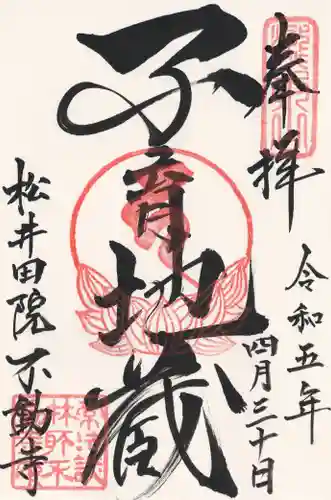 奉拝
令和五年
四月三十日
子育地蔵
松井田院不動寺